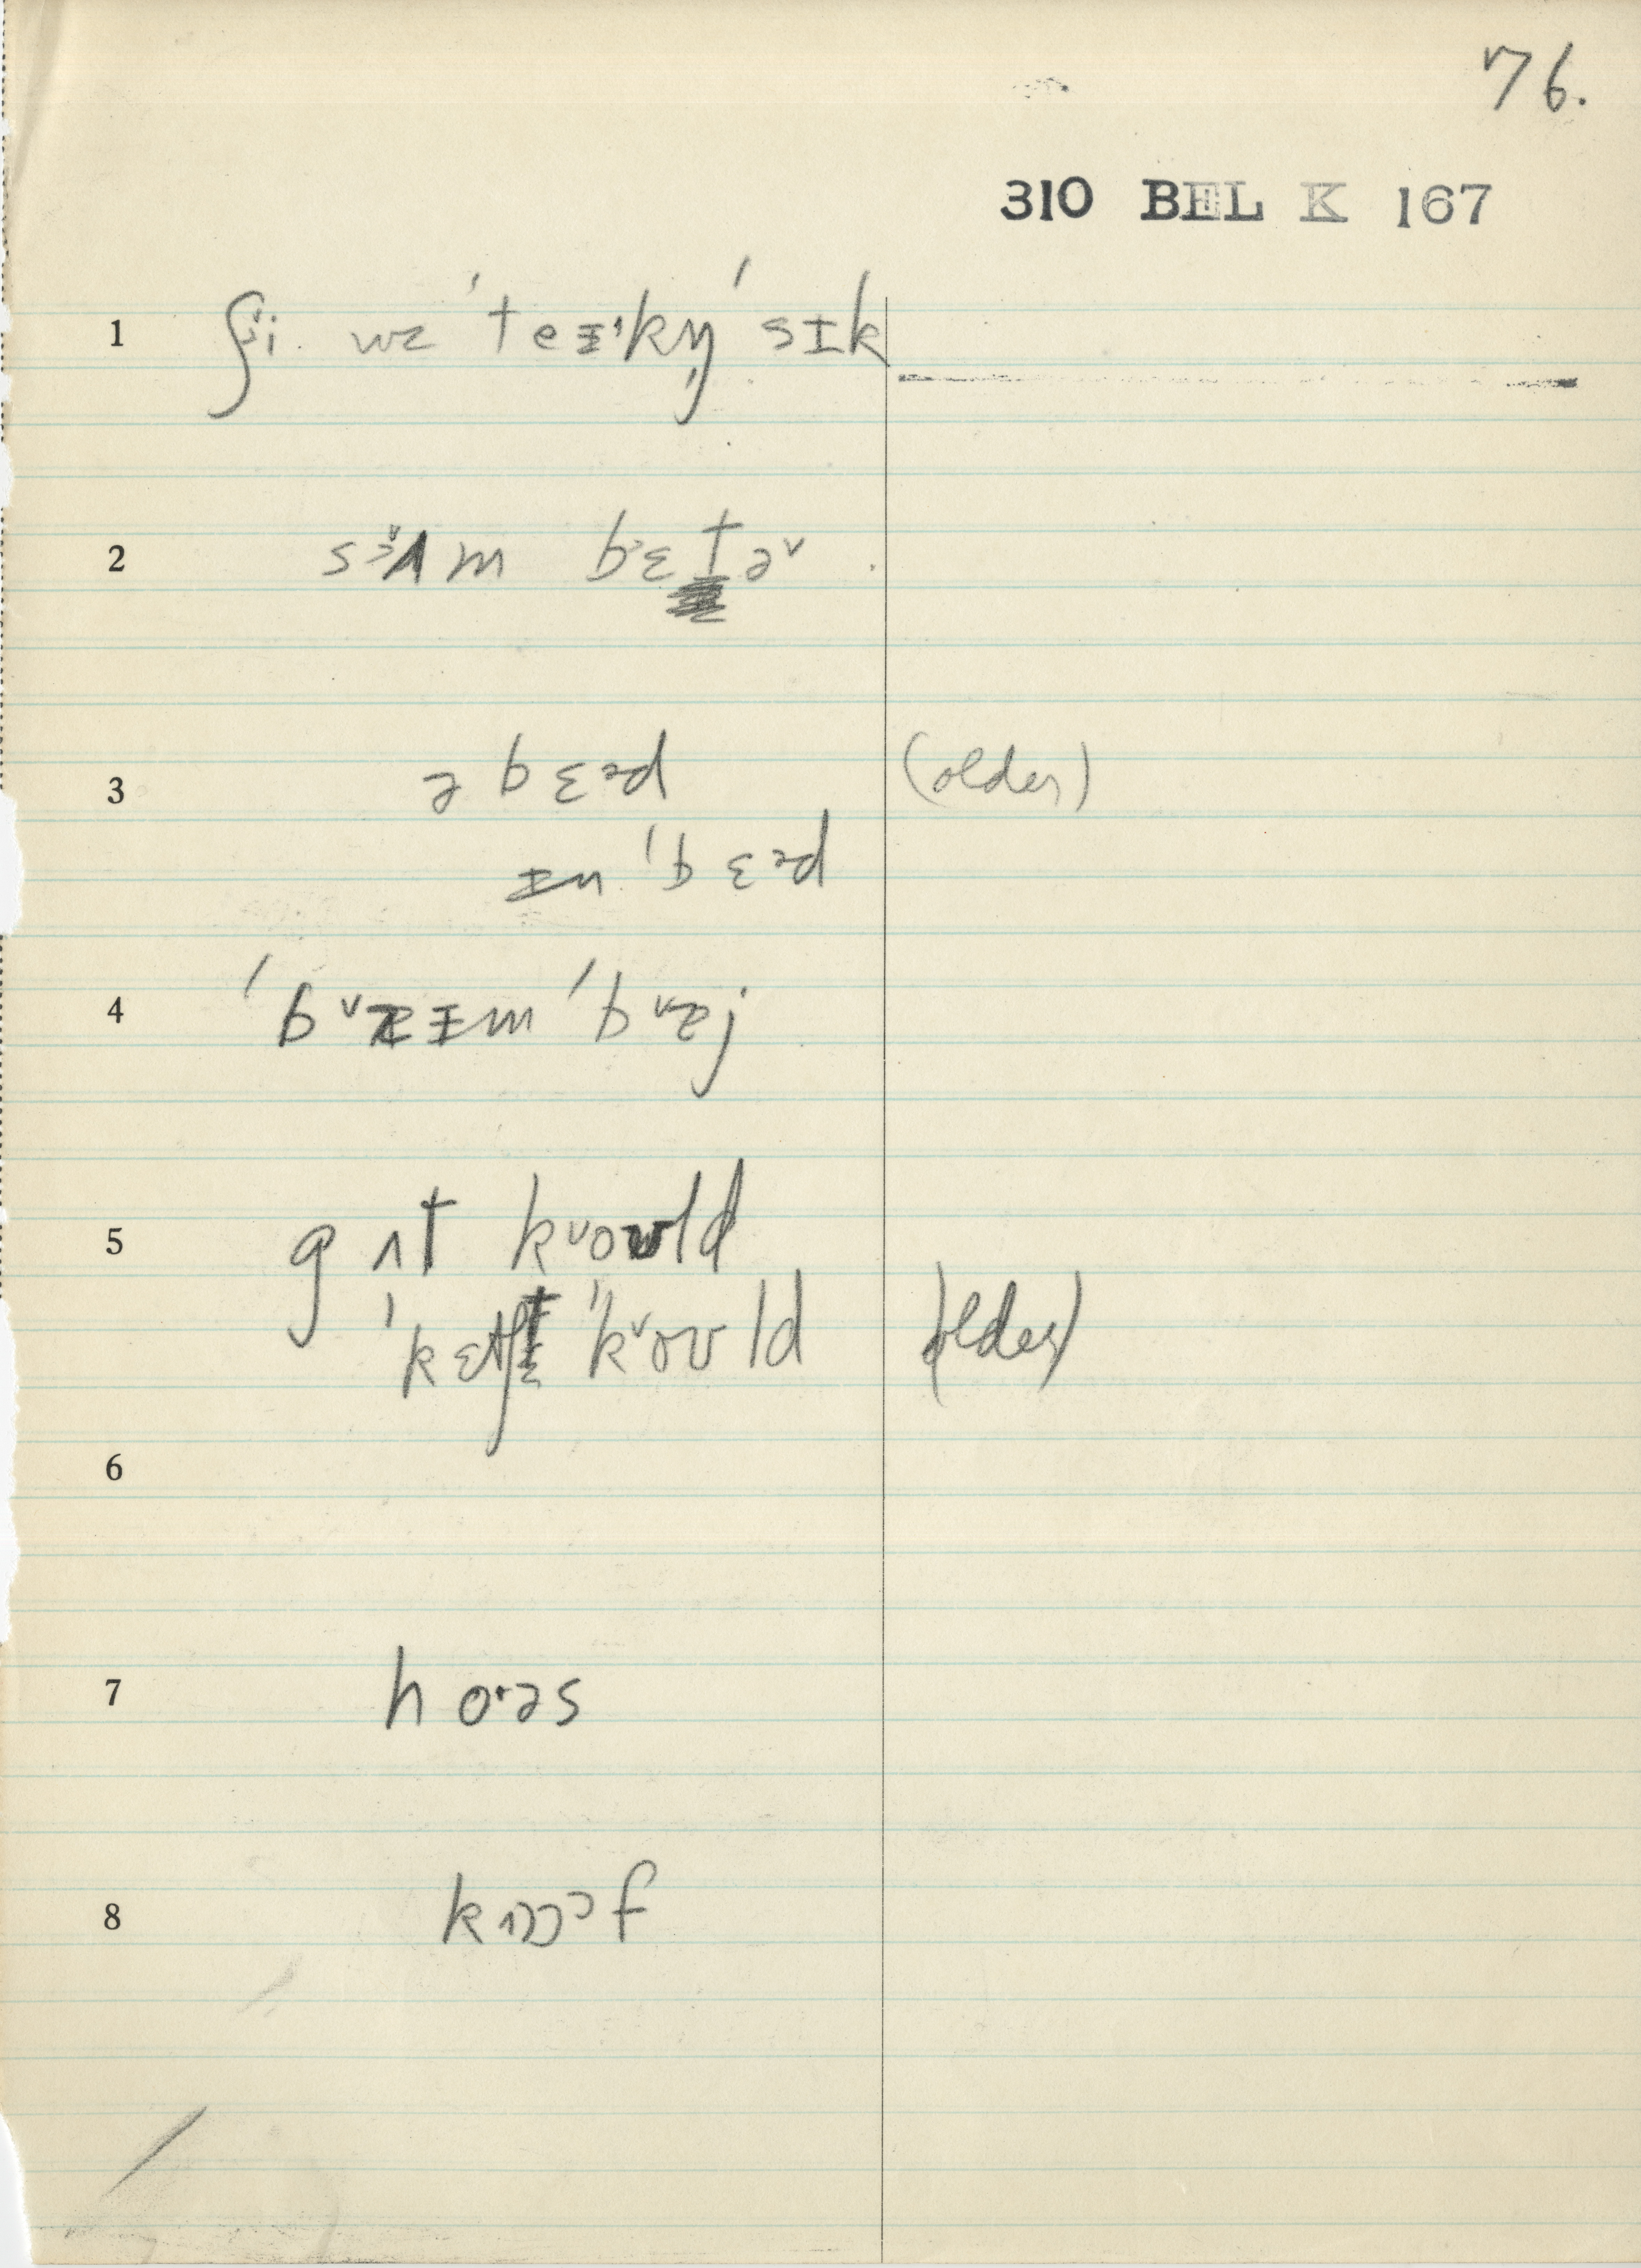 76.
310 BEL K 167
1 ʃi wəz ˈteɪkŋ̩ ˈsɪk
2 sʌm bɛtə˞
3 ə bɛəd (older)
ɪn ˈbɛəd
4
5 gʌt kˇoʊld
ˈkɛtʃt ˈkˇoʊld (older)
6
7 hoəs
8 kɔɔf